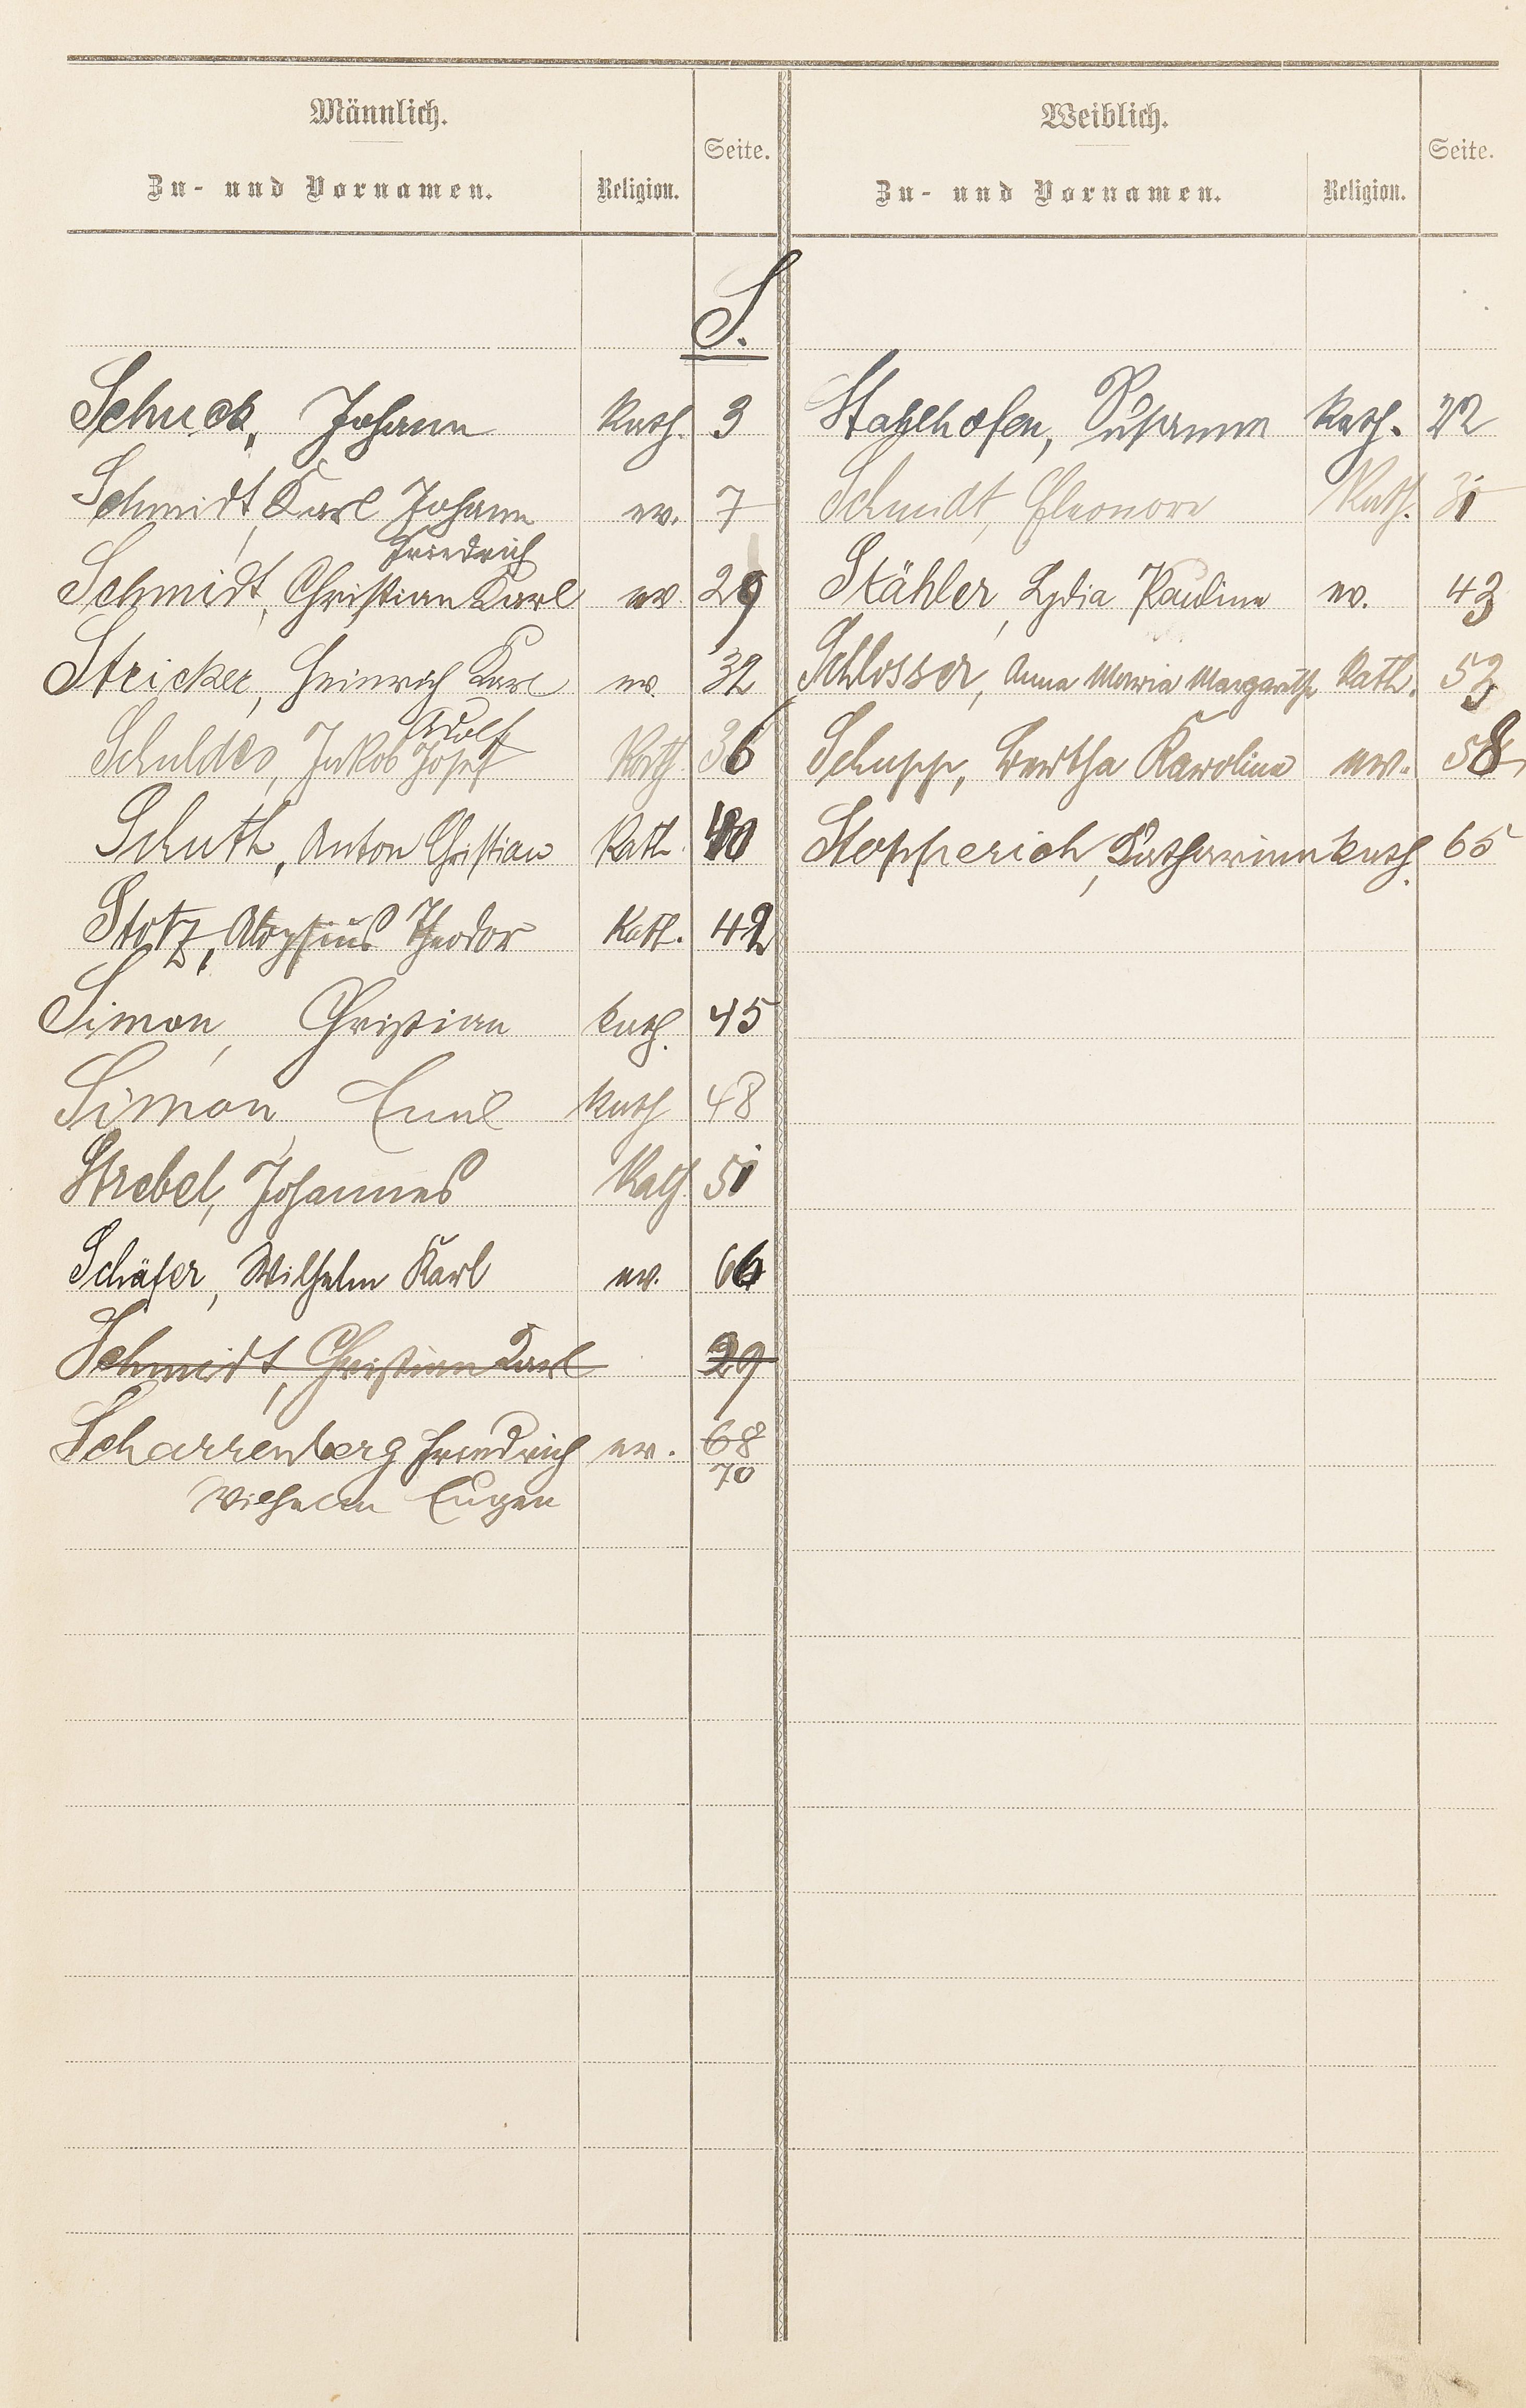 Männlich.
Zu- und Vornamen. Religion. Seite.
Weiblich.
Zu- und Vornamen. Religion. Seite.
S.
Schuck, Johann kath. 3
Schmidt, Karl Johann ev. 7
Friedrich
Schmidt, Christian Karl ev. 29
Stricker, Heinrich Karl ev. 32
Adolf
Schuldes, Jakob Josef Kath. 36
Schuth, Anton Christian Kath. 40
Stotz, Aloysius Theodor Kath. 42
Simon, Christian kath. 45
Simon, Emil kath 48
Strebel, Johannes Kath. 51
Schäfer, Wilhelm Karl ev. 66
Schmidt, Christian Karl 29
Scharrenberg Friedrich ev. 68
Wilhelm Eugen 70
Stahlhofen, Susanna kath. 22
Schmidt, Eleonore Kath. 31
Stähler, Lydia Pauline ev. 43
Schlosser, Anna Maria Margarethe Kath. 53
Schupp, Bertha Karoline ev. 58
Stopperich, Katharina kath. 65